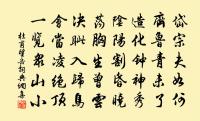 岱宗夫如何
齊魯青未了
造化鍾神秀
陰陽割昏曉
蕩胸生曾雲
決眥入歸鳥
會當凌絕頂
一覽眾山小
杜甫望岳詞典網集